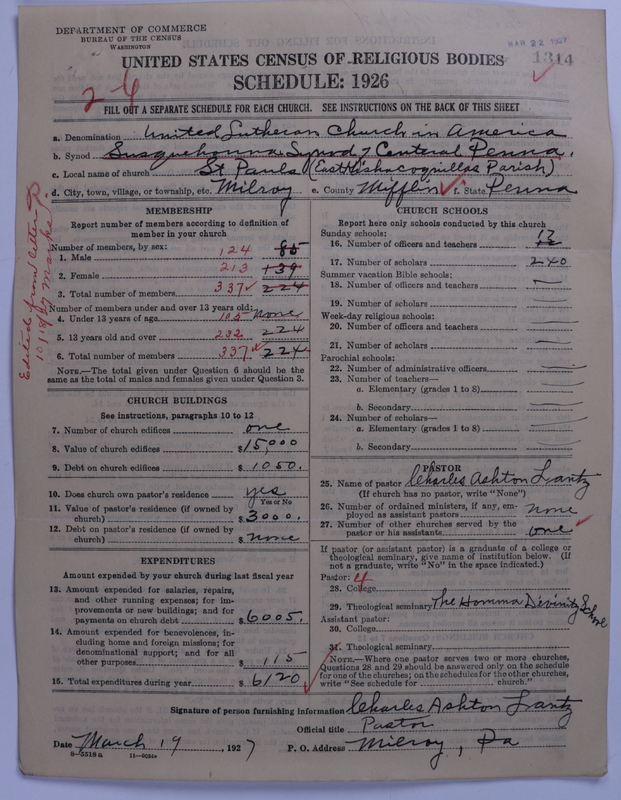 DEPARTMENT OF COMMERCE
BUREAU OF THE CENSUS
WASHINGTON
MAR 22 1927
1314
UNITED STATES CENSUS OF RELIGIOUS BODIES
SCHEDULE: 1926
2-6
FILL OUT A SEPARATE SCHEDULE FOR EACH CHURCH. SEE INSTRUCTIONS ON THE BACK OF THIS SHEET
a. Denomination United Lutheran Church in America
b. Synod Susquehanna Synod of Central Penna.
c. Local name of church St Pauls (East Kishacoquillas Parish)
d. City, town, village, or township, etc. Milroy e. County Mifflin f. State Penna
MEMBERSHIP
Report number of members according to definition of member in your church
Number of members, by sex:
1. Male 124 85
2. Female 213 139
3. Total number of members 337 224
Number of members under and over 13 years old:
4. Under 13 years of age 105 None
5. 13 years old and over 232 224
6. Total number of members 337 224
NOTE.—The total given under Question 6 should be the same as the total of males and females given under Question 3.
CHURCH BUILDINGS
See instructions, paragraphs 10 to 12
7. Number of church edifices one
8. Value of church edifices $15,000
9. Debt on church edifices $1050.
10. Does church own pastor's residence yes
Yes or No
11. Value of pastor's residence (if owned by church) $3000.
12. Debt on pastor's residence (if owned by church) $none
EXPENDITURES
Amount expended by your church during last fiscal year
13. Amount expended for salaries, repairs, and other running expenses; for improvements or new buildings; and for payments on church debt $6005.
14. Amount expended for benevolences, including home and foreign missions; for denominational support; and for all other purposes $115
15. Total expenditures during year $6120
CHURCH SCHOOLS
Report here only schools conducted by this church
Sunday schools:
16. Number of officers and teachers 12
17. Number of scholars 240
Summer vacation Bible schools:
18. Number of officers and teachers
19. Number of scholars
Week-day religious schools:
20. Number of officers and teachers
21. Number of scholars
Parochial schools:
22. Number of administrative officers
23. Number of teachers—
a. Elementary (grades 1 to 8)
b. Secondary
24. Number of scholars—
a. Elementary (grades 1 to 8)
b. Secondary
PASTOR
25. Name of pastor Charles Ashton Lantz
(If church has no pastor, write "None")
26. Number of ordained ministers, if any, employed as assistant pastors none
27. Number of other churches served by the pastor or his assistants one
If pastor (or assistant pastor) is a graduate of a college or theological seminary, give name of institution below. (If not a graduate, write "No" in the space indicated.)
Pastor: 4
28. College
29. Theological seminary The Homma Devinity School
Assistant pastor:
30. College
31. Theological seminary
NOTE.—Where one pastor serves two or more churches, Questions 28 and 29 should be answered only on the schedule for one of the churches; on the schedules for the other churches, write "See schedule for church."
Signature of person furnishing information Charles Ashton Lantz
Official title Pastor
Date March 19, 1927 P. O. Address Milroy, Pa
8-5518a 11-9034a